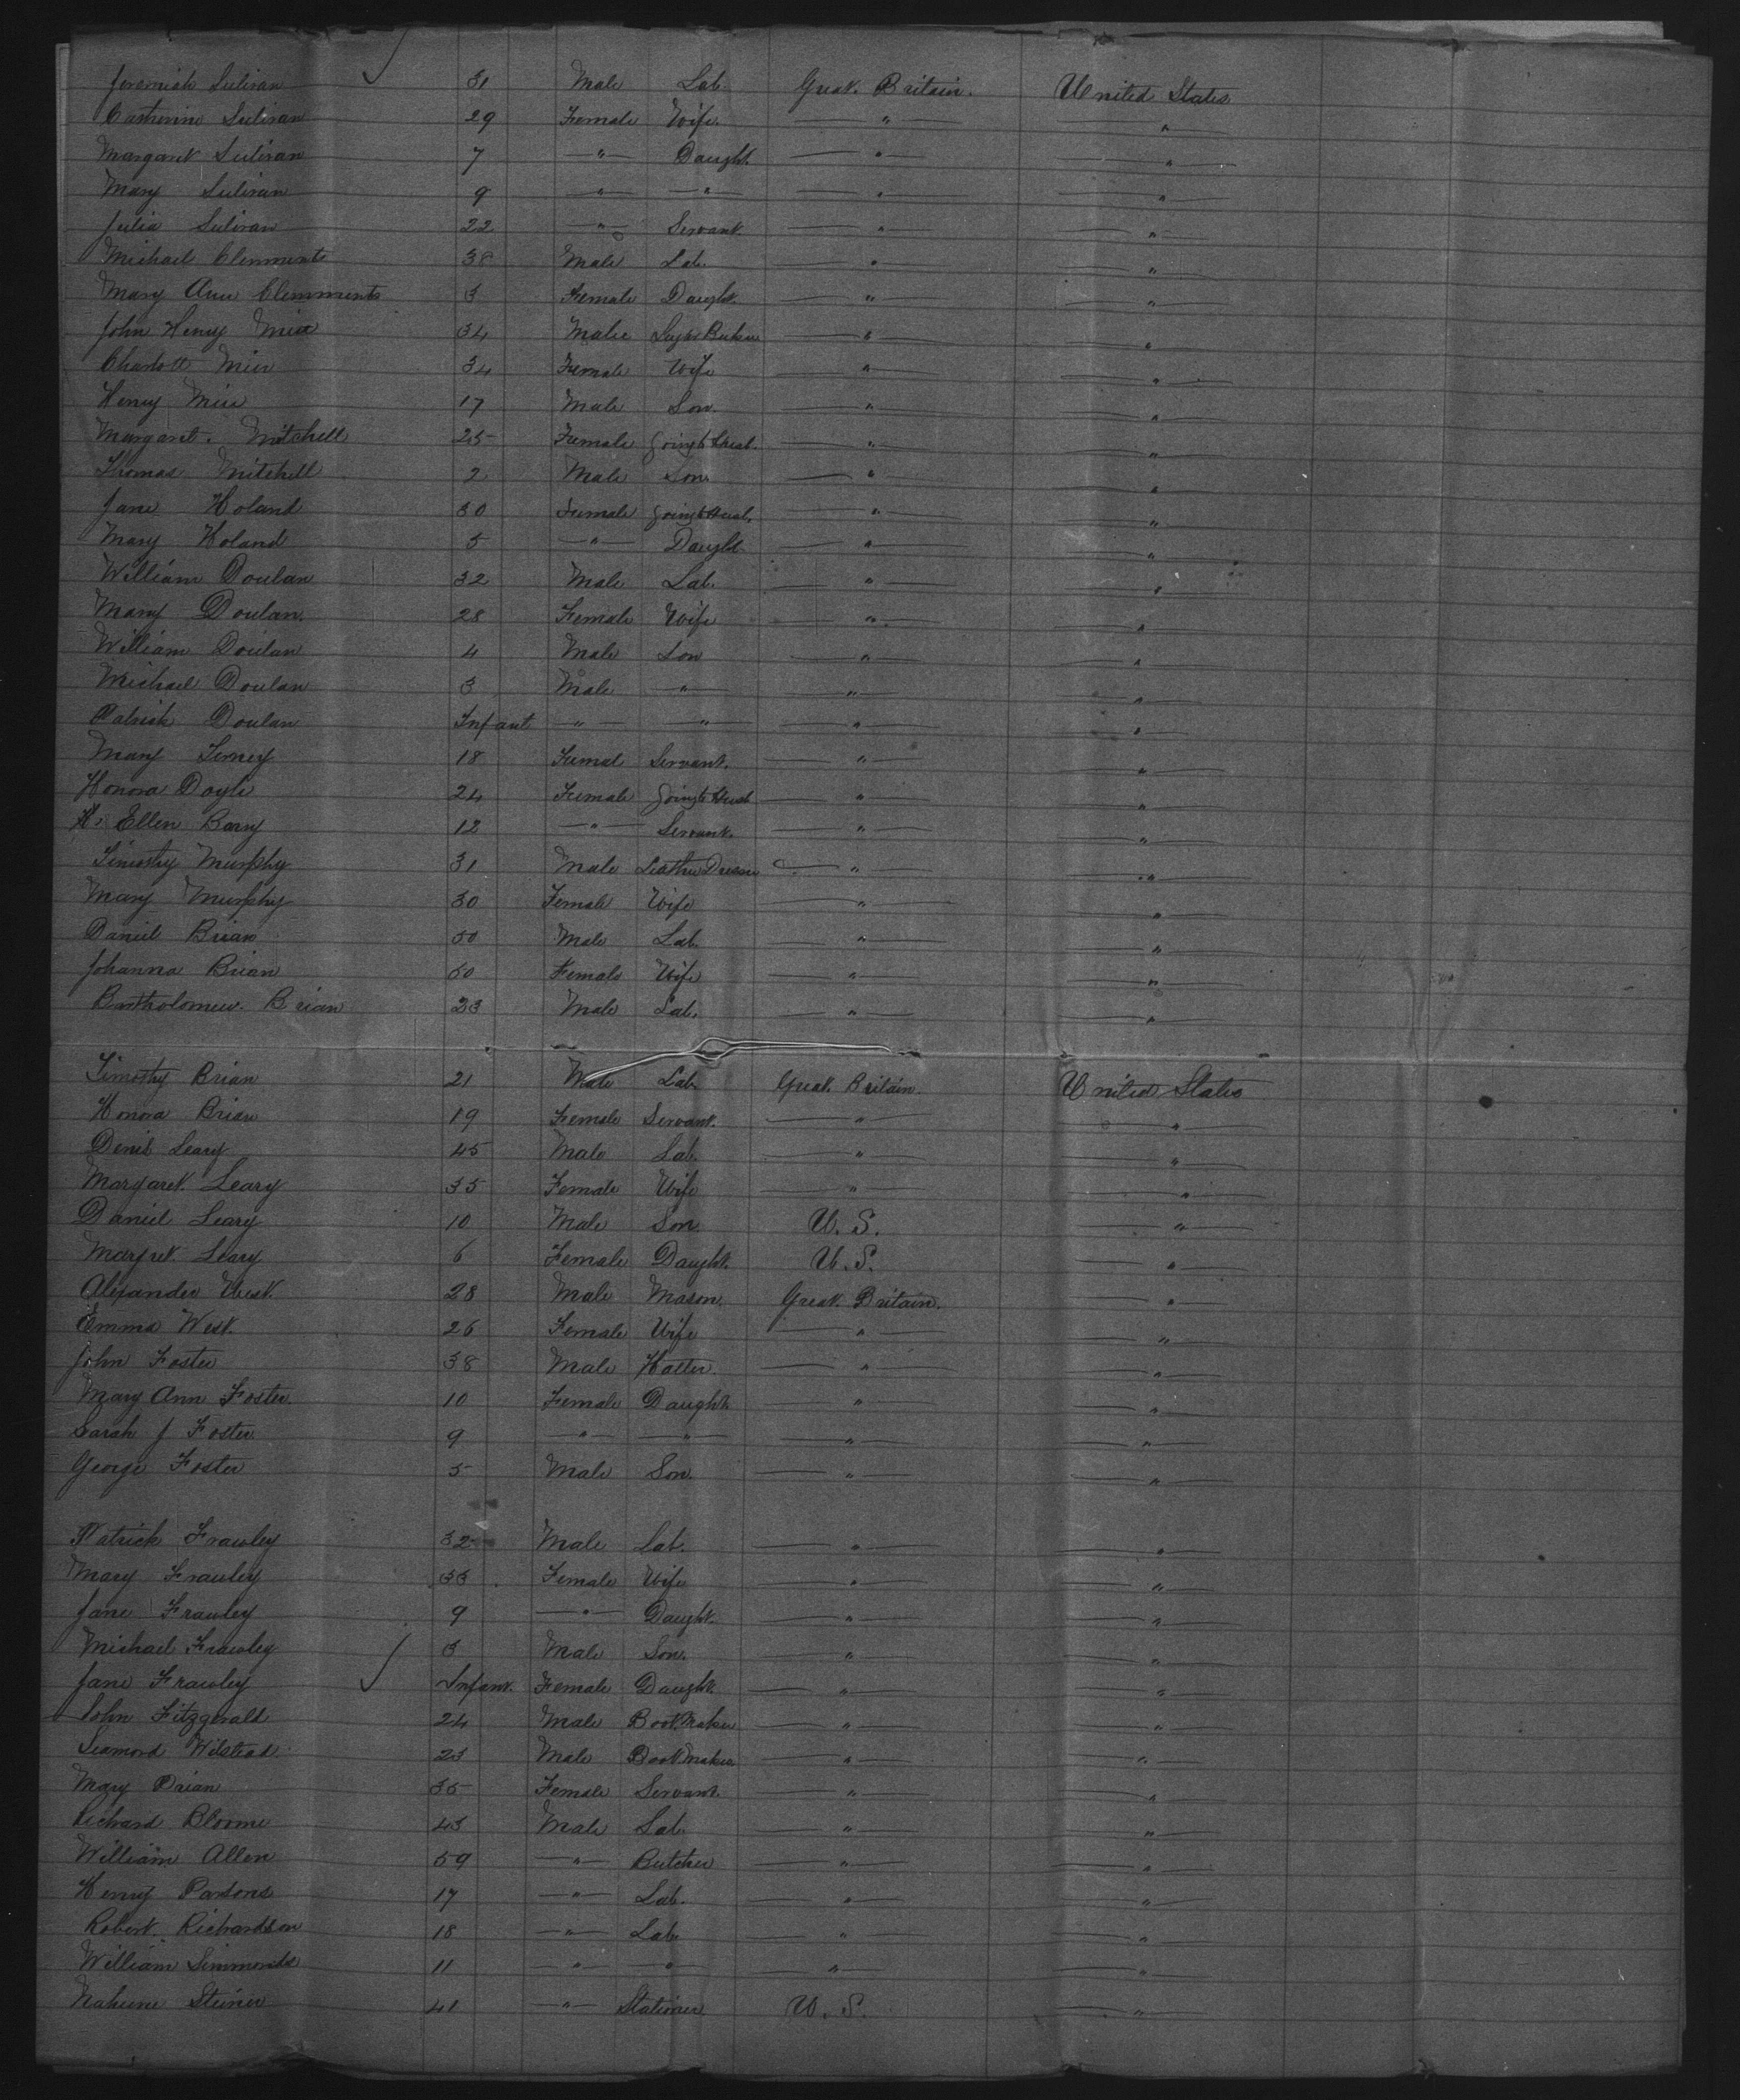 Jeremiah Sulivan 31 Male Lab. Great. Britain. United States
Catherine Sulivan 29 Female Wife. " "
Margaret Sulivan 7 " Daught. " "
Mary Sulivan 9 " " " "
Julia Sulivan 22 " Servant. " "
Michael Clemments 38 Male Lab. " "
Mary Ann Clemments 3 Female Daught. " "
John Henry 34 Male " "
Charlott 34 Female Wife " "
Henry 17 Male Son. " "
Margaret. Mitchell 25 Female going to Husb. " "
Thomas Mitchell 2 Male Son " "
Jane Holand 30 Female going to Husb. " "
Mary Holand 5 " Daught. " "
William Doulan 32 Male Lab. " "
Mary Doulan. 28 Female Wife " "
William Doulan 4 Male Son " "
Michael Doulan 3 Male " " "
Patrick Doulan Infant " " " "
Mary 18 Femal Servant. " "
Honora Doyle 24 Female going to Husb " "
H. Ellen Barry 12 " Servant. " "
Timothy Murphy 31 Male Leather Dresser " "
Mary Murphy 30 Female Wife " "
Daniel Brian 50 Male Lab. " "
Johanna Brian 50 Female Wife " "
Bartholomew. Brian 23 Male Lab. " "
Timothy Brian 21 Male Lab Great. Britain. United States
Honora Brian 19 Female Servant. " "
Denis Leary 45 Male Lab. " "
Margaret. Leary 35 Female Wife " "
Daniel Leary 10 Male Son U. S. "
Margret. Leary 6 Female Daught. U. S. "
Alexander West. 28 Male Mason. Great. Britain. "
Emma West. 26 Female Wife " "
John Foster 38 Male Hatter. " "
Mary Ann Foster. 10 Female Daught. " "
Sarah J Foster 9 " " " "
George Foster 5 Male Son. " "
Patrick Frawley 32 Male Lab. " "
Mary Frawley 33 Female Wife " "
Jane Frawley 9 " Daught. " "
Michael Frawley 3 Male Son. " "
Jane Frawley Infant. Female Daught. " "
John Fitzgerald 24 Male Boot Maker " "
Wilstead 23 Male Boot Maker " "
Mary Brian 35 Female Servant. " "
Richard Bloome 43 Male Lab. " "
William Allen 59 " Butcher " "
Henry Parsons 17 " Lab. " "
Robert. Richardson 18 " Lab. " "
William Simmonds 11 " " " "
Steiner 41 " Stationer U. S. "